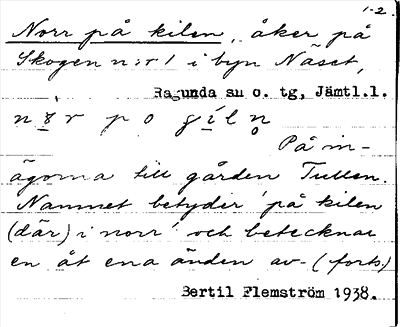 1-2.
Norr på kilen, åker på
Skogen n:r 1 i byn Näset,
Ragunda sn o. tg, Jämtl.l.
På in-
ägorna till gården Tullen.
Namnet betyder 'på kilen
(där) i norr' och betecknar
en åt ena änden av- (forts)
Bertil Flemström 1938.